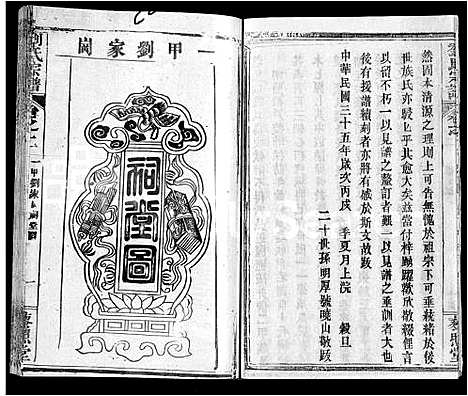 然固本清源之理則上可告無愧於祖宗下可垂裕緒於後
世族氏亦駸駸乎其愈大矣茲當付梓踴躍歡欣敬綴俚言
以留不朽一以見譜之釐訂者艱一以見譜之垂訓者大也
後有援譜續刻者亦將有感於斯文故跋
中華民國三十五年歲次丙戌 季夏月上浣 穀旦
二十世孫明厚號曉山敬跋
一甲劉家閫
祠堂圖
劉氏宗譜
卷之二
一